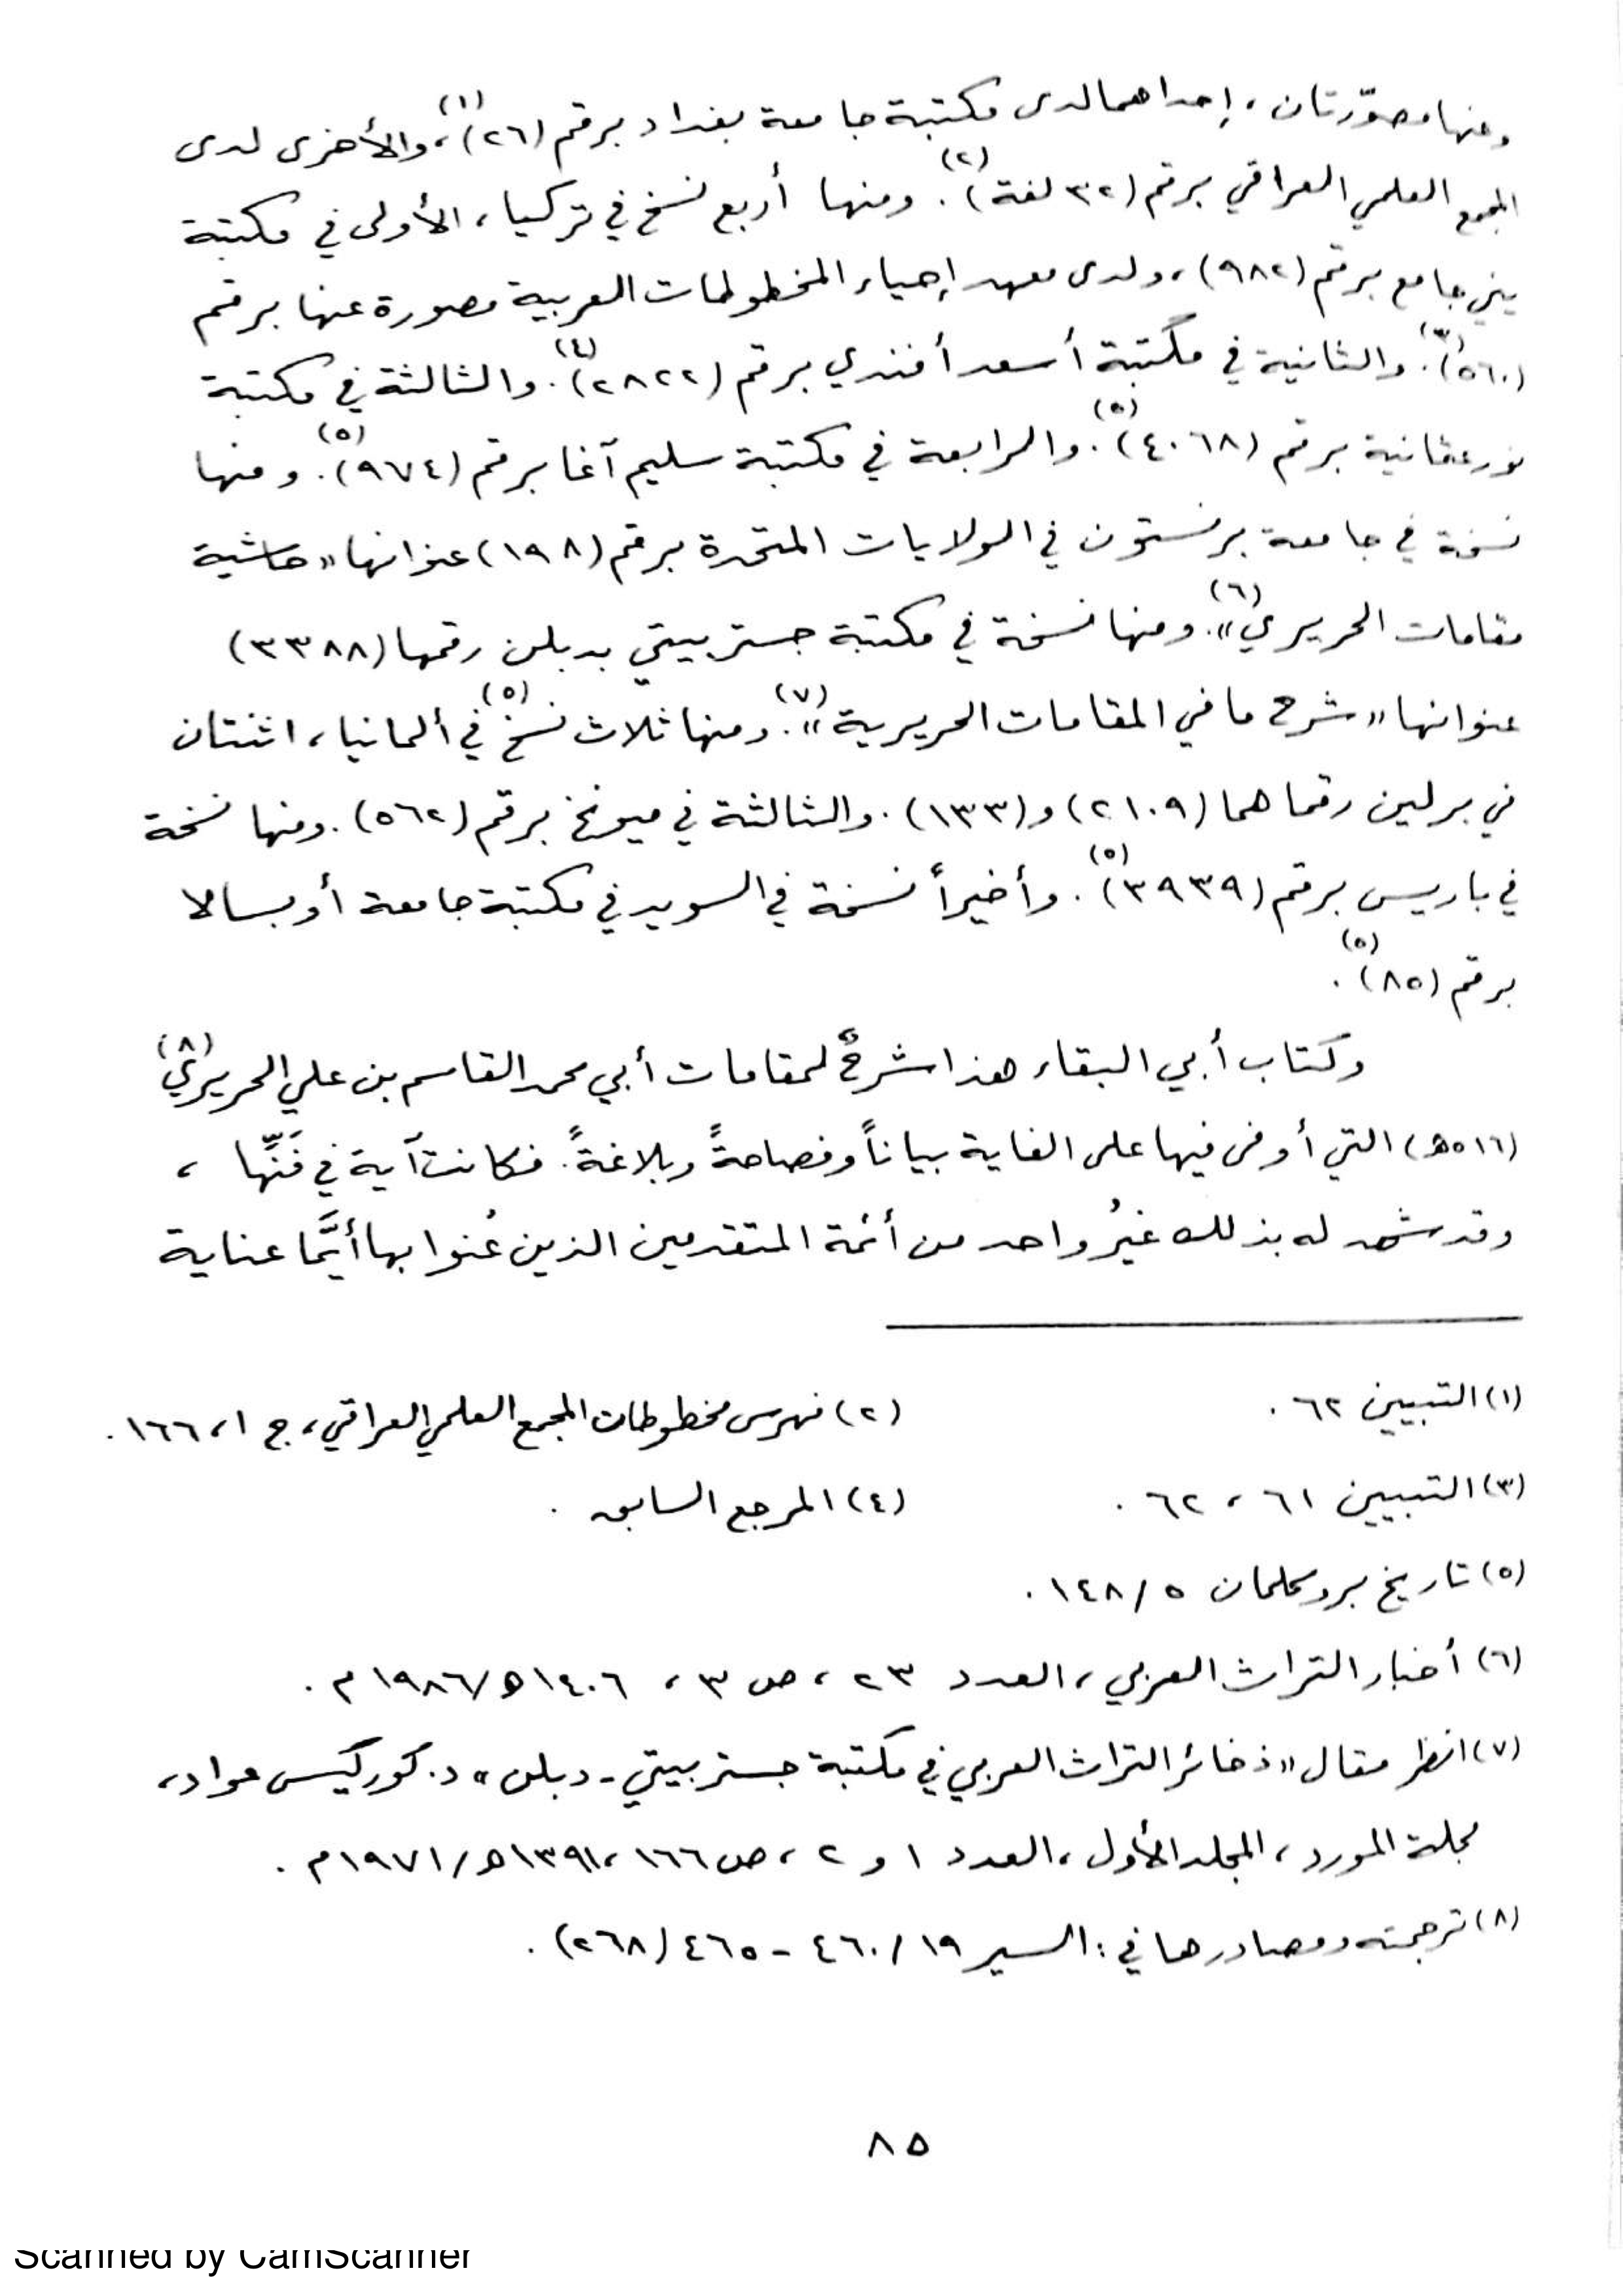 وعنها مصوّرتان، إحداهما لدى مكتبة جامعة بغداد برقم (٢٦)(١)، والأخرى لدى
المجمع العلمي العراقي برقم (٣٢ لغة)(٢). ومنها أربع نسخ في تركيا، الأولى في مكتبة
يني جامع برقم (٩٨٢)، ولدى معهد إحياء المخطوطات العربية مصورة عنها برقم
(٥٦٠)(٣). والثانية في مكتبة أسعد أفندي برقم (٢٨٢٢)(٤). والثالثة في مكتبة
نور عثمانية برقم (٤٠٦٨)(٥). والرابعة في مكتبة سليم آغا برقم (٩٧٤)(٥). ومنها
نسخة في جامعة برنستون في الولايات المتحدة برقم (١٩٨) عنوانها «حاشية
مقامات الحريري»(٦). ومنها نسخة في مكتبة جستر بيتي بدبلن رقمها (٣٣٨٨)
عنوانها «شرح ما في المقامات الحريرية»(٧). ومنها ثلاث نسخ(٥) في ألمانيا، اثنتان
في برلين رقماهما (٢١٠٩) و(١٣٣). والثالثة في ميونخ برقم (٥٦٢). ومنها نسخة
في باريس برقم (٣٩٣٩)(٥). وأخيراً نسخة في السويد في مكتبة جامعة أوبسالا
برقم (٨٥)(٥).
وكتاب أبي البقاء هذا شرحٌ لمقامات أبي محمد القاسم بن علي الحريريّ(٨)
(٥١٦هـ) التي أوفى فيها على الغاية بياناً وفصاحةً وبلاغةً. فكانت آية في فَنِّها،
وقد شهد له بذلك غيرُ واحد من أئمة المتقدمين الذين عُنوا بها أيَّما عناية
(١) التبيين ٦٢.
(٢) فهرس مخطوطات المجمع العلمي العراقي، ج ١، ١٦٦.
(٣) التبيين ٦١، ٦٢.
(٤) المرجع السابق.
(٥) تاريخ بروكلمان ٥/١٤٨.
(٦) أخبار التراث العربي، العدد ٢٣، ص ٣، ١٤٠٦هـ/١٩٨٦م.
(٧) انظر مقال «ذخائر التراث العربي في مكتبة جستر بيتي - دبلن» د. كوركيس عواد،
مجلة المورد، المجلد الأول، العدد ١ و ٢، ص ١٦٦، ١٣٩١هـ/١٩٧١م.
(٨) ترجمته ومصادرها في: السير ١٩/٤٦٠ - ٤٦٥ (٢٦٨).
٨٥
Scanned by CamScanner